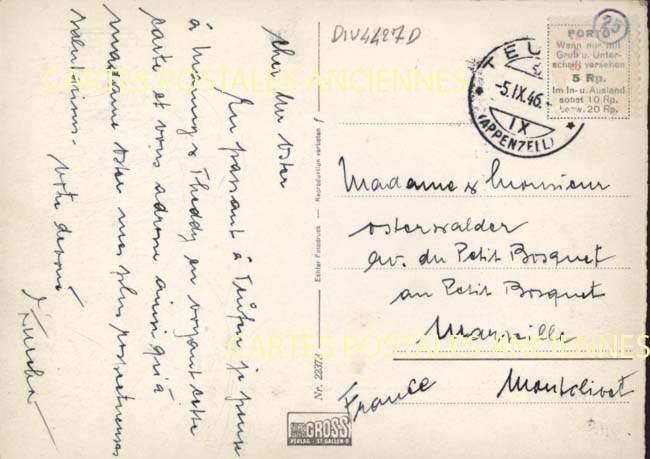 DIV4427D
25
PORTO
Wenn nur mit
Gruß u. Unter-
schrift versehen
5 Rp.
Im In- u. Ausland
sonst 10 Rp.
bezw. 20 Rp.
TEU
-5.IX.46.
IX
(APPENZELL)
CARTES POSTALES ANCIENNES
Cher Mr Oster
En passant à Teufen je pense
à Mommy & Theddy en voyant cette
carte et vous adresse ainsi qu'à
madame Oster mes plus respectueuses
salutations. Votre dévoué
Echter Fotodruck — Reproduktion verboten
Nr. 2237
Madame & Monsieur
Osterwalder
av. du Petit Bosquet
au Petit Bosquet
Marseille
France Montolivet
CARTES POSTALES ANCIENNES
GROSS
VERLAG - ST. GALLEN-O